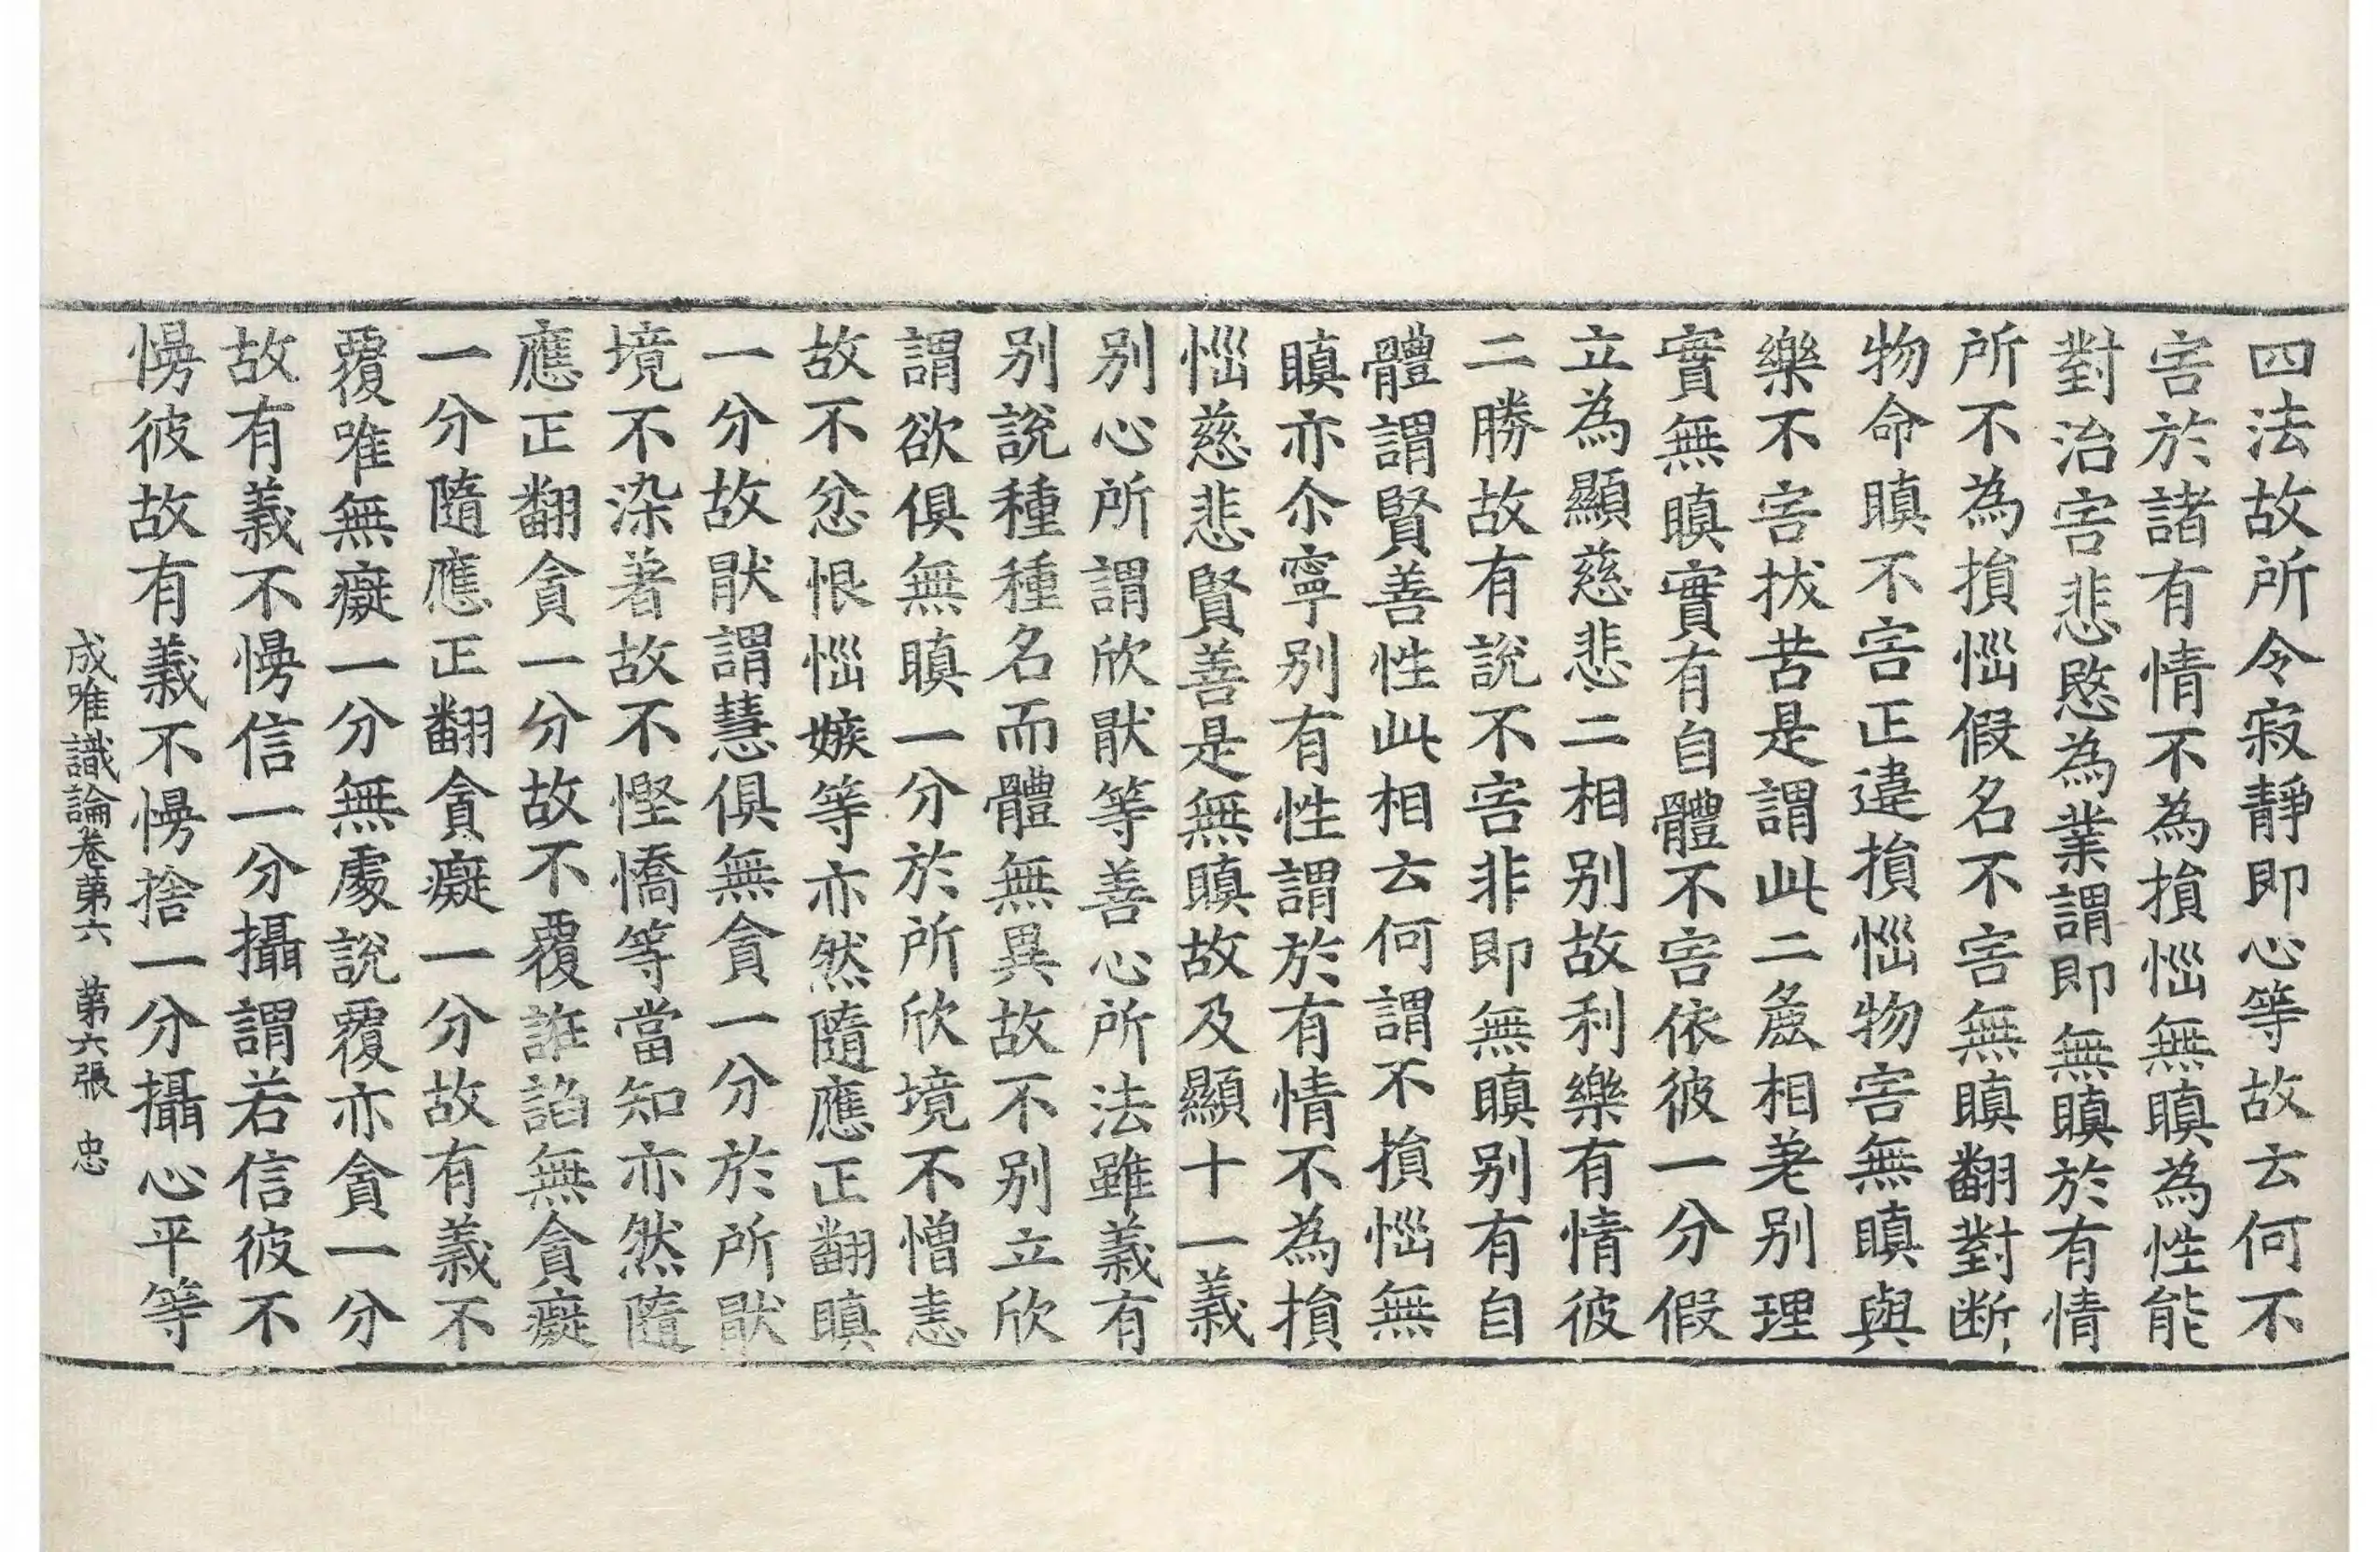 四法故所令寂靜即心等故云何不
害於諸有情不為損惱無瞋為性能
對治害悲愍為業謂即無瞋於有情
所不為損惱假名不害無瞋翻對断
物命瞋不害正違損惱物害無瞋與
樂不害拔苦是謂此二麁相差别理
實無瞋實有自體不害依彼一分假
立為顯慈悲二相别故利樂有情彼
二勝故有說不害非即無瞋别有自
體謂賢善性此相云何謂不損惱無
瞋亦尒寧别有性謂於有情不為損
惱慈悲賢善是無瞋故及顯十一義
别心所謂欣猒等善心所法雖義有
别說種種名而體無異故不别立欣
謂欲俱無瞋一分於所欣境不憎恚
故不忿恨惱嫉等亦然隨應正翻瞋
一分故猒謂慧俱無貪一分於所猒
境不染著故不慳憍等當知亦然隨
應正翻貪一分故不覆誑諂無貪癡
一分隨應正翻貪癡一分故有義不
覆唯無癡一分無處說覆亦貪一分
故有義不慢信一分攝謂若信彼不
慢彼故有義不慢捨一分攝心平等
成唯識論卷第六 第六張 忠